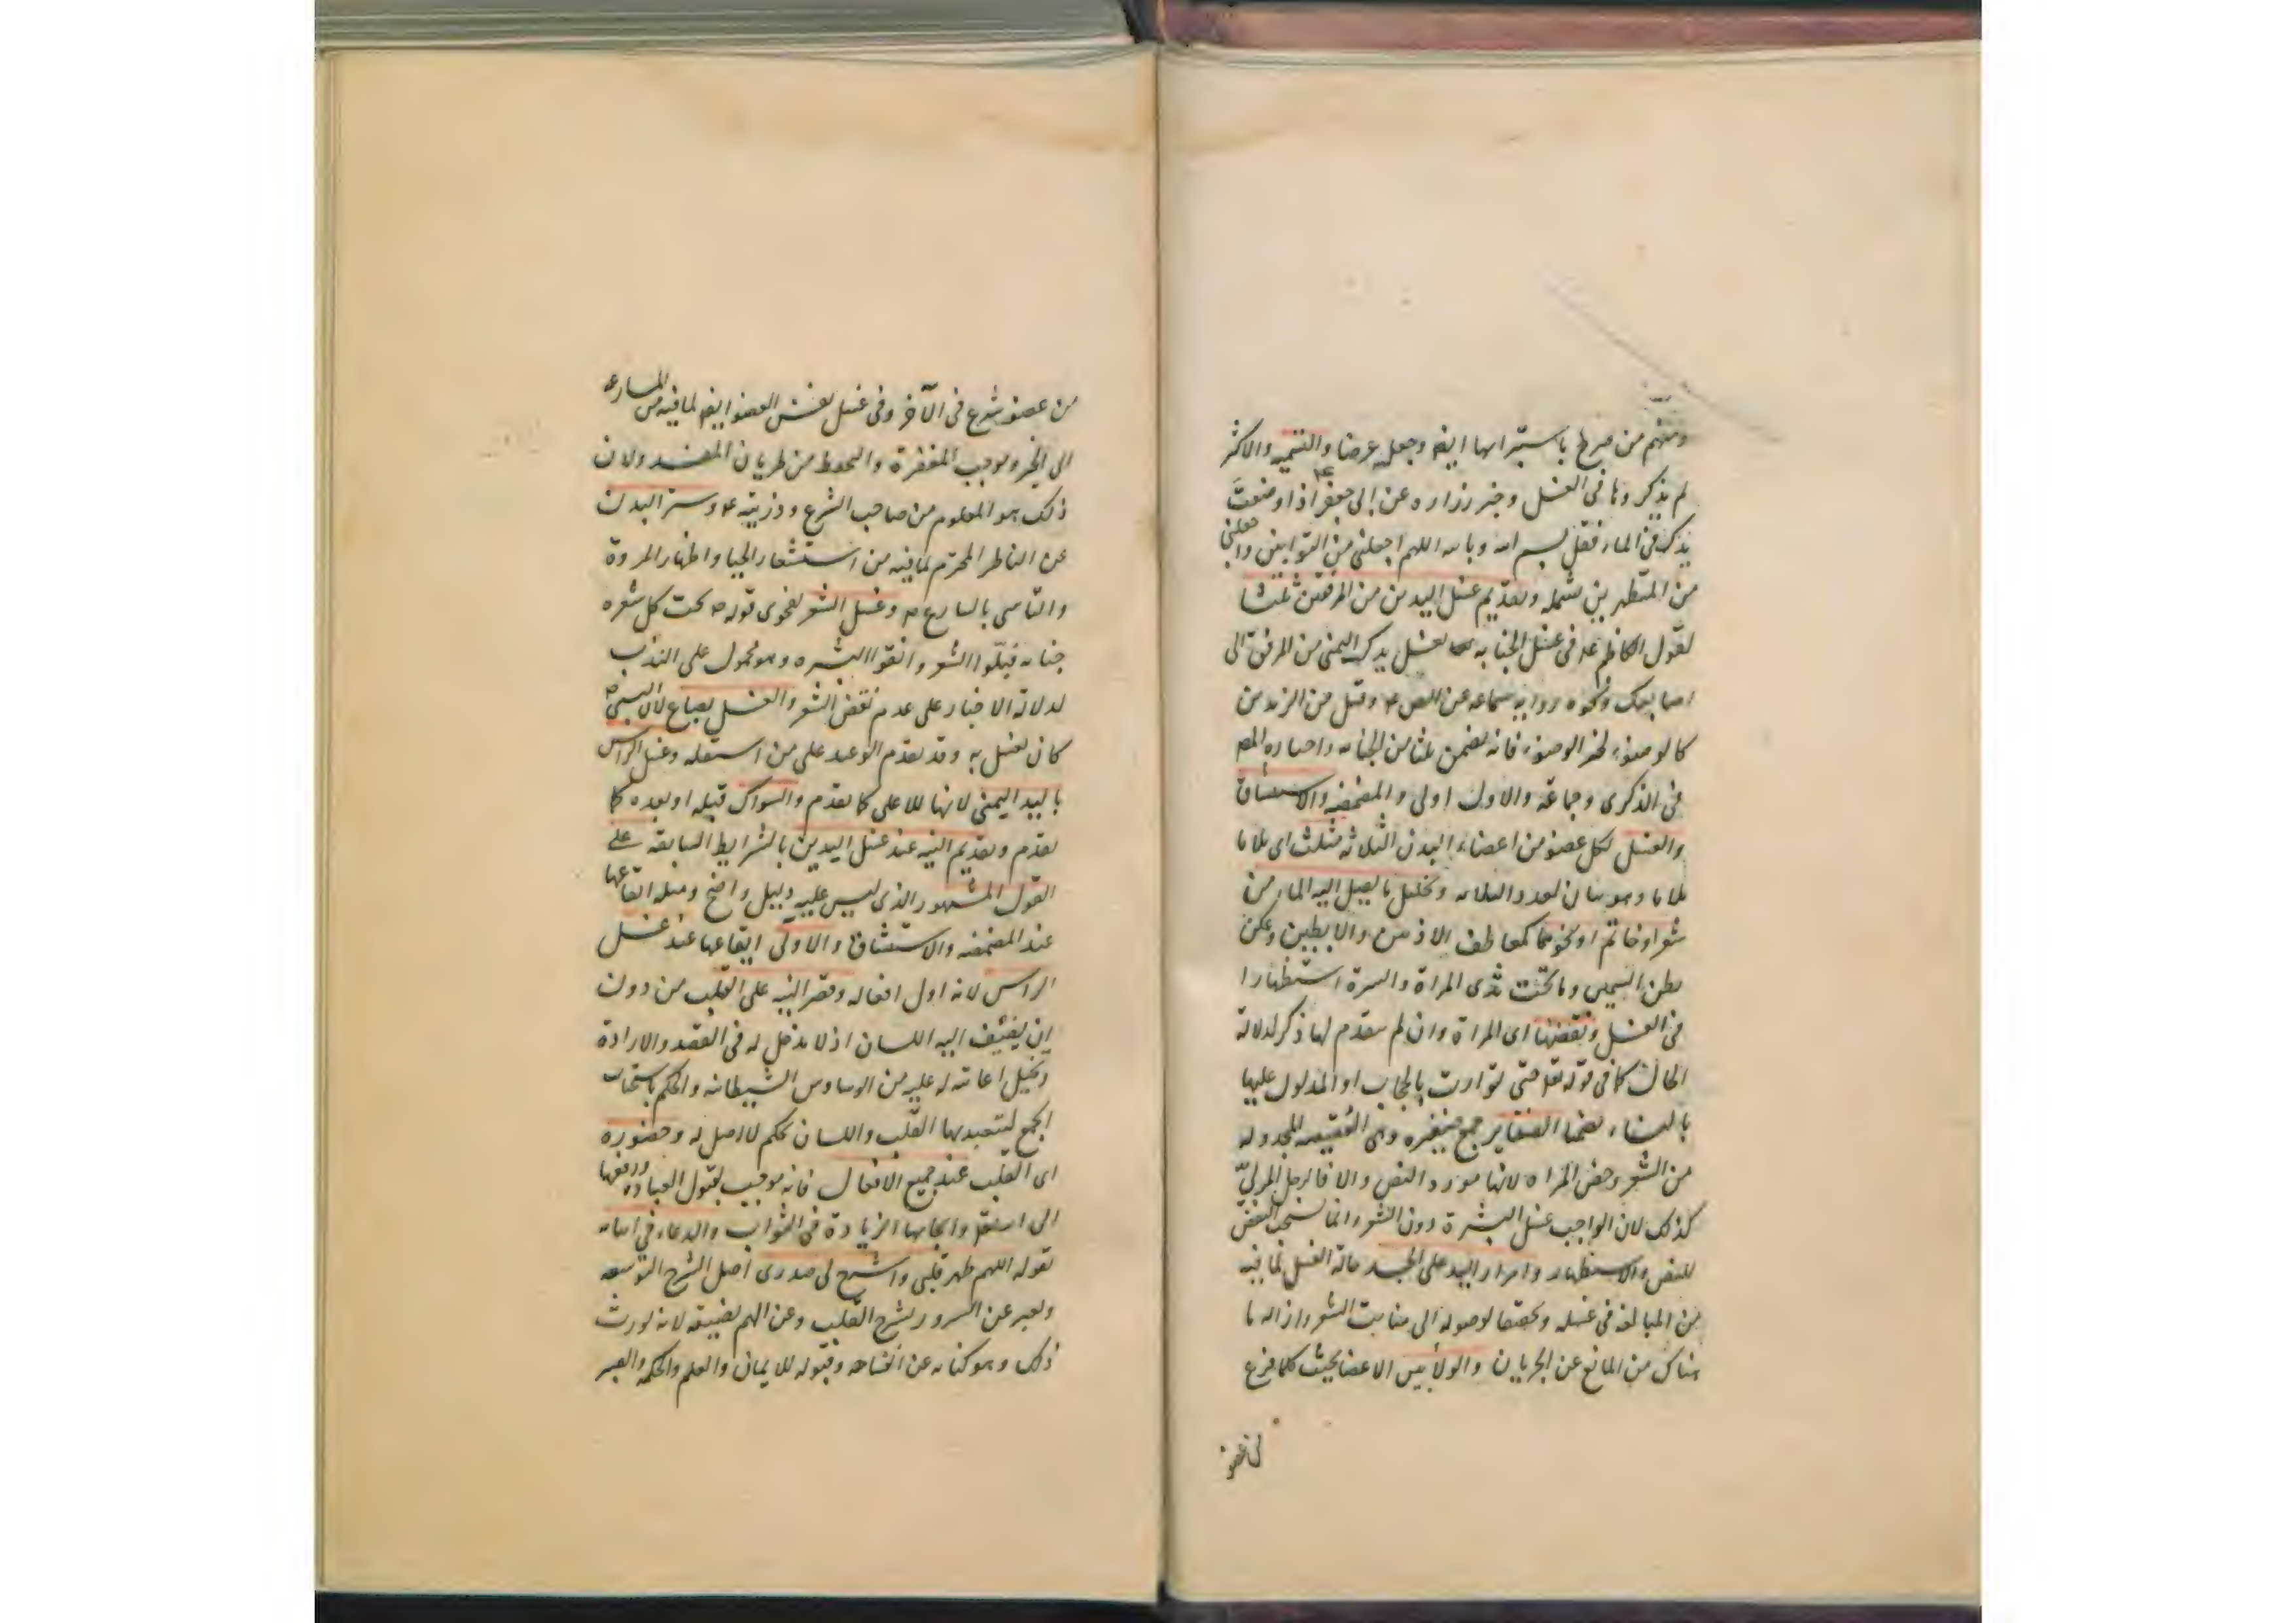 ومنهم من صرح باستبرائها ايضا وجعله عرضا والتسمية والاكثر
لم يذكروها في الغسل وخبر زراره عن ابي جعفر ع اذا وضعت
يدك في الماء فقل بسم الله وبالله اللهم اجعلني من التوابين واجعلني
من المتطهرين يشمله وتقديم غسل اليدين من المرفقين ثلثا
لقول الكاظم ع في غسل الجنابه تغسل يدك اليمنى من المرفق الى
اصابعك ونحوه روايه سماعه عن الص ع وقيل من الزندين
كالوضوء لخبر الوضوء فانه تضمن ثلثا من الجنابه واختاره المصه
في الذكرى وجماعة والاول اولى والمضمضه والاستنشاق
والغسل لكل عضو من اعضاء البدن الثلاثه مثلث اى ثلاثا
ثلاثا وهو بيان لعدد الثلاثه وتخليل ما يصل اليه الماء من
شعر او خاتم او نحوهما كمعاطف الاذنين والابطين وعكن
بطن السمين وما تحت ثدى المراة والسرة استظهارا
في الغسل ونقضها اى المراة وان لم يتقدم لها ذكر لدلالة
الحال كما في قوله تعا حتى توارت بالحجاب او المدلول عليها
بالنساء ضمنا الضفاير جمع ضفيره وهى العقيصه المجدوله
من الشعر وخص المراه لانها مورد النص والا فالرجل المربّي
كذلك لان الواجب غسل البشرة دون الشعر وانما يستحب النقض
للنص والاستظهار وامرار اليد على الجسد حالة الغسل لما فيه
من المبالغه في غسله وتحققا لوصوله الى منابت الشعر وازاله ما
هناك من المانع عن الجريان والولا بين الاعضا بحيث كلما فرغ
من عضو
من عضو شرع في الآخر وفي غسل نفس العضو ايضا لما فيه من المسارعه
الى الخير وموجب المغفرة والتحفظ من طريان المفسد ولان
ذلك هو المعلوم من صاحب الشرع وذريته ع وستر البدن
عن الناظر المحترم لما فيه من استشعار الحيا واظهار المروة
والتاسى بالشارع ص وغسل الشعر لفحوى قوله ص تحت كل شعره
جنابه فبلّوا الشعر وانقوا البشره وهو محمول على الندب
لدلالة الاخبار على عدم نقض الشعر والغسل بصاع لان النبى ص
كان يغتسل به وقد تقدم الوعيد على من استقله وغسل الراس
باليد اليمنى لانها للاعلى كما تقدم والسواك قبله او بعده كما
تقدم وتقديم النيه عند غسل اليدين بالشرايط السابقه على
القول المشهور الذى ليس عليه دليل واضح ومثله ايقاعها
عند المضمضه والاستنشاق والاولى ايقاعها عند غسل
الراس لانه اول افعاله وقصر النيه على القلب من دون
ان يضيف اليه اللسان اذ لا مدخل له في القصد والارادة
وتخيل اعانته له عليه من الوساوس الشيطانيه والحكم باستحباب
الجمع لتعبدهما القلب واللسان تحكم لا اصل له وحضوره
اى القلب عند جميع الافعال فانه موجب لقبول العباده ورفعها
الى الله تعا وايجابها الزيادة في الثواب والدعاء في اثنائه
بقوله اللهم طهر قلبى واشرح لى صدرى اصل الشرح التوسعه
ويعبر عن السرور بشرح القلب وعن الهم بضيقه لانه يورث
ذلك وهو كنايه عن انفساحه وقبوله للايمان والعلم والحكمه والصبر